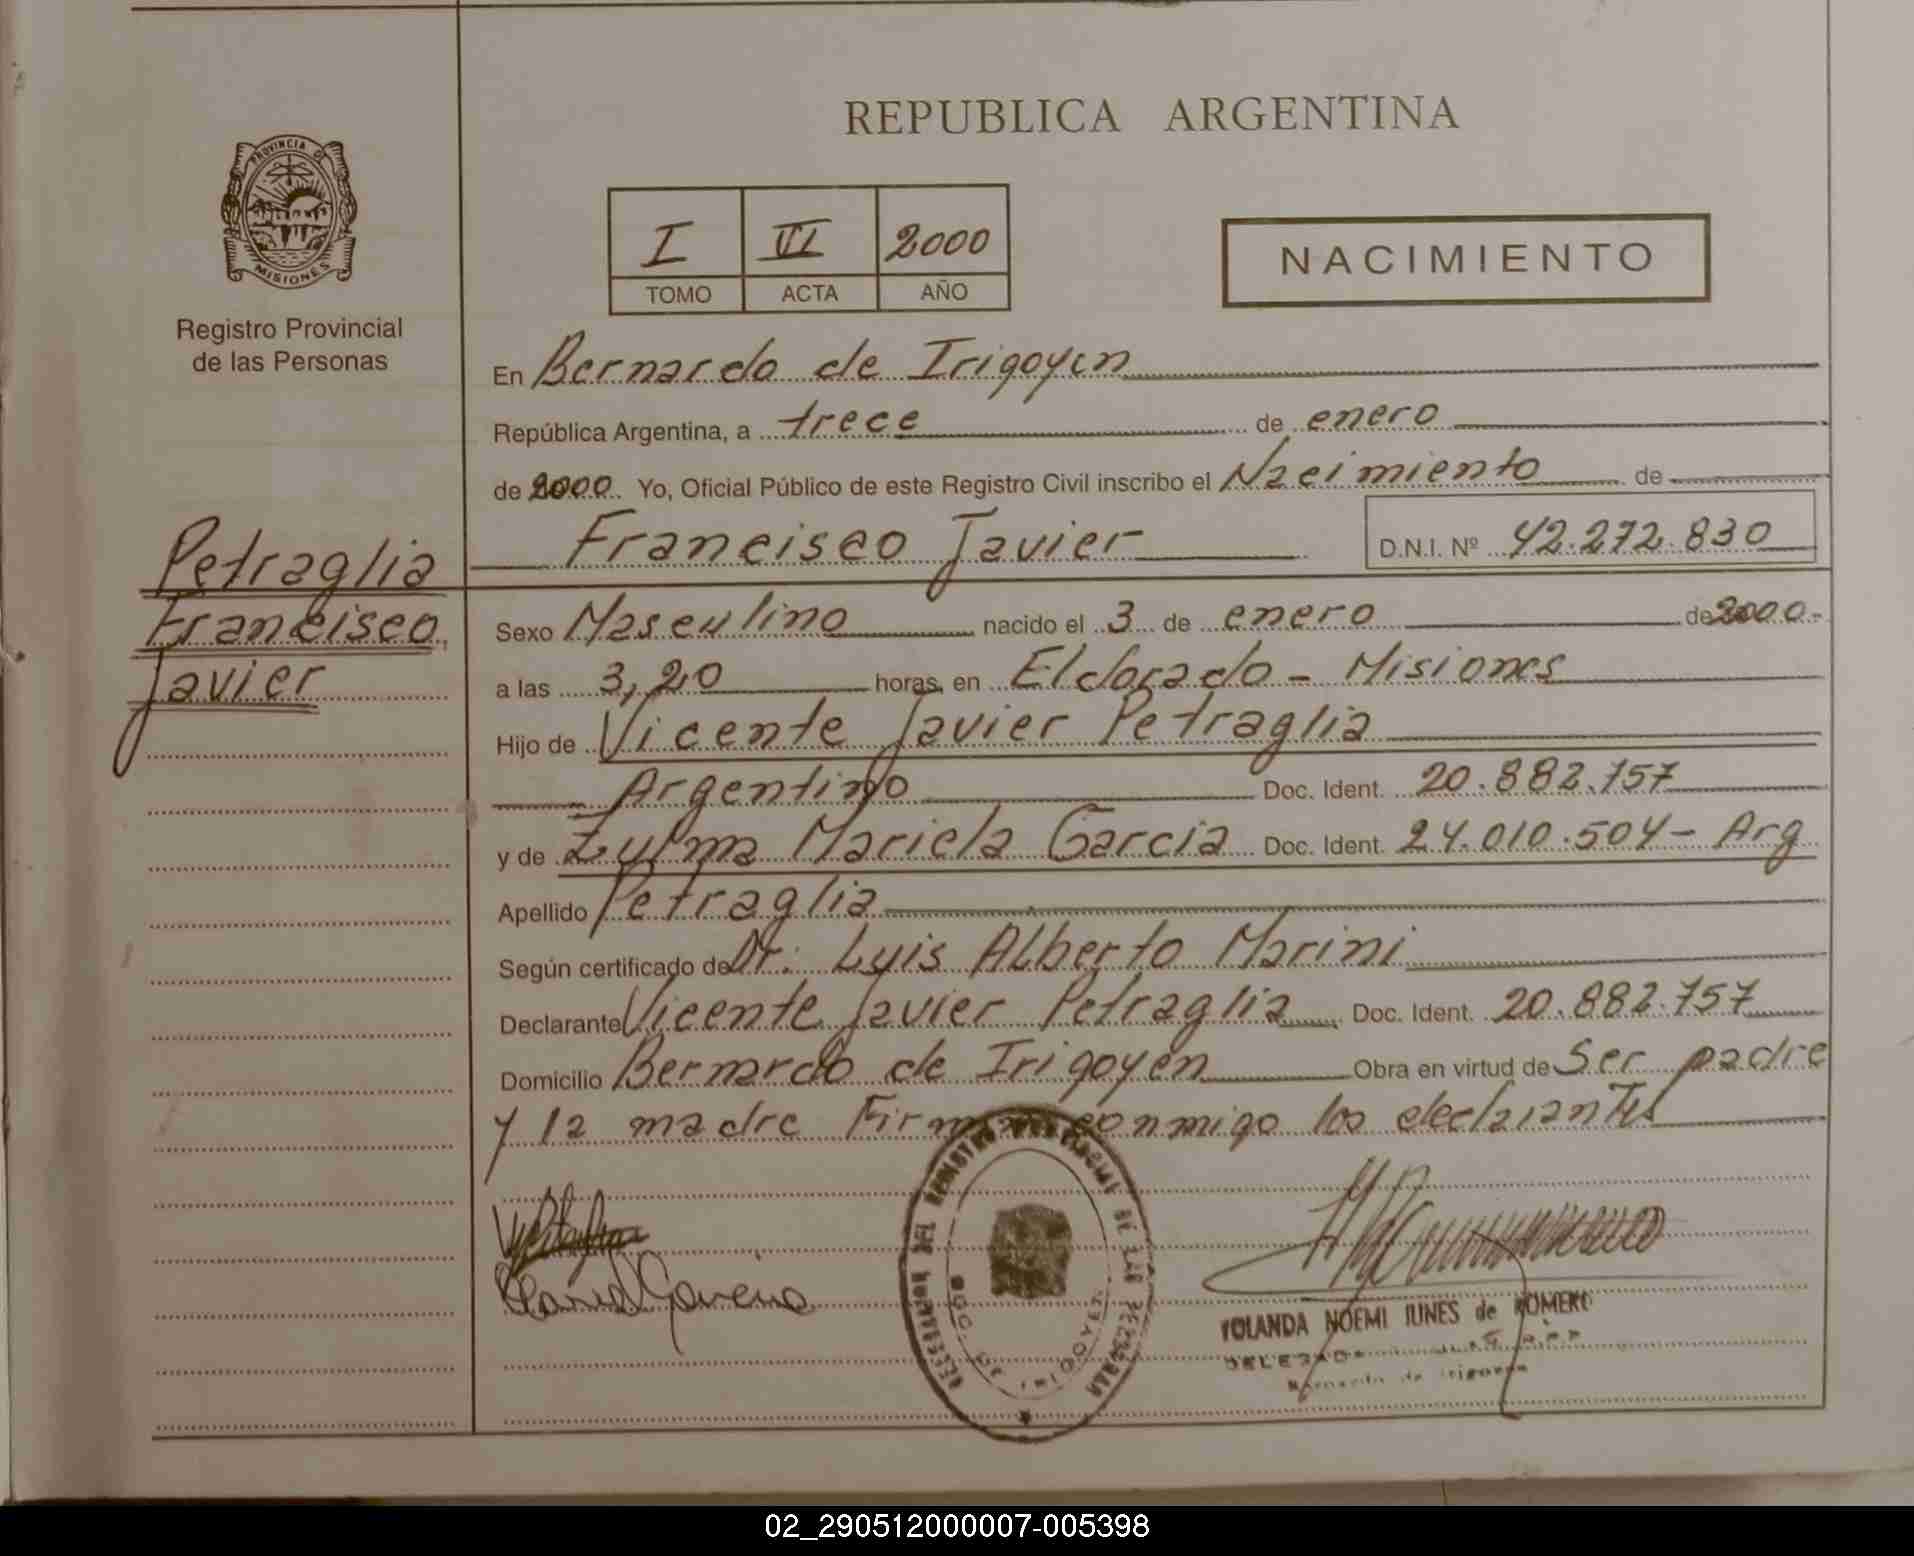 REPUBLICA ARGENTINA
PROVINCIA DE
MISIONES
Registro Provincial
de las Personas
I VI 2000
TOMO ACTA AÑO
NACIMIENTO
En Bernardo de Irigoyen
República Argentina, a trece de enero
de 2000 Yo, Oficial Público de este Registro Civil inscribo el Nacimiento de
Francisco Javier D.N.I. Nº 42.272.830
Petraglia
Francisco
Javier
Sexo Masculino nacido el 3 de enero de 2000-
a las 3,20 horas, en Eldorado - Misiones
Hijo de Vicente Javier Petraglia
Argentino Doc. Ident. 20.882.757
y de Zulma Mariela Garcia Doc. Ident. 24.010.504- Arg
Apellido Petraglia
Según certificado de Dr. Luis Alberto Marini
Declarante Vicente Javier Petraglia Doc. Ident. 20.882.757
Domicilio Bernardo de Irigoyen Obra en virtud de Ser padre
y la madre Firman conmigo los declarantes
DEL REGISTRO PROVINCIAL DE LAS PERSONAS
BDO. DE IRIGOYEN
YOLANDA NOEMI IUNES de ROMERO
DELEGADA
Bernardo de Irigoyen
02_290512000007-005398